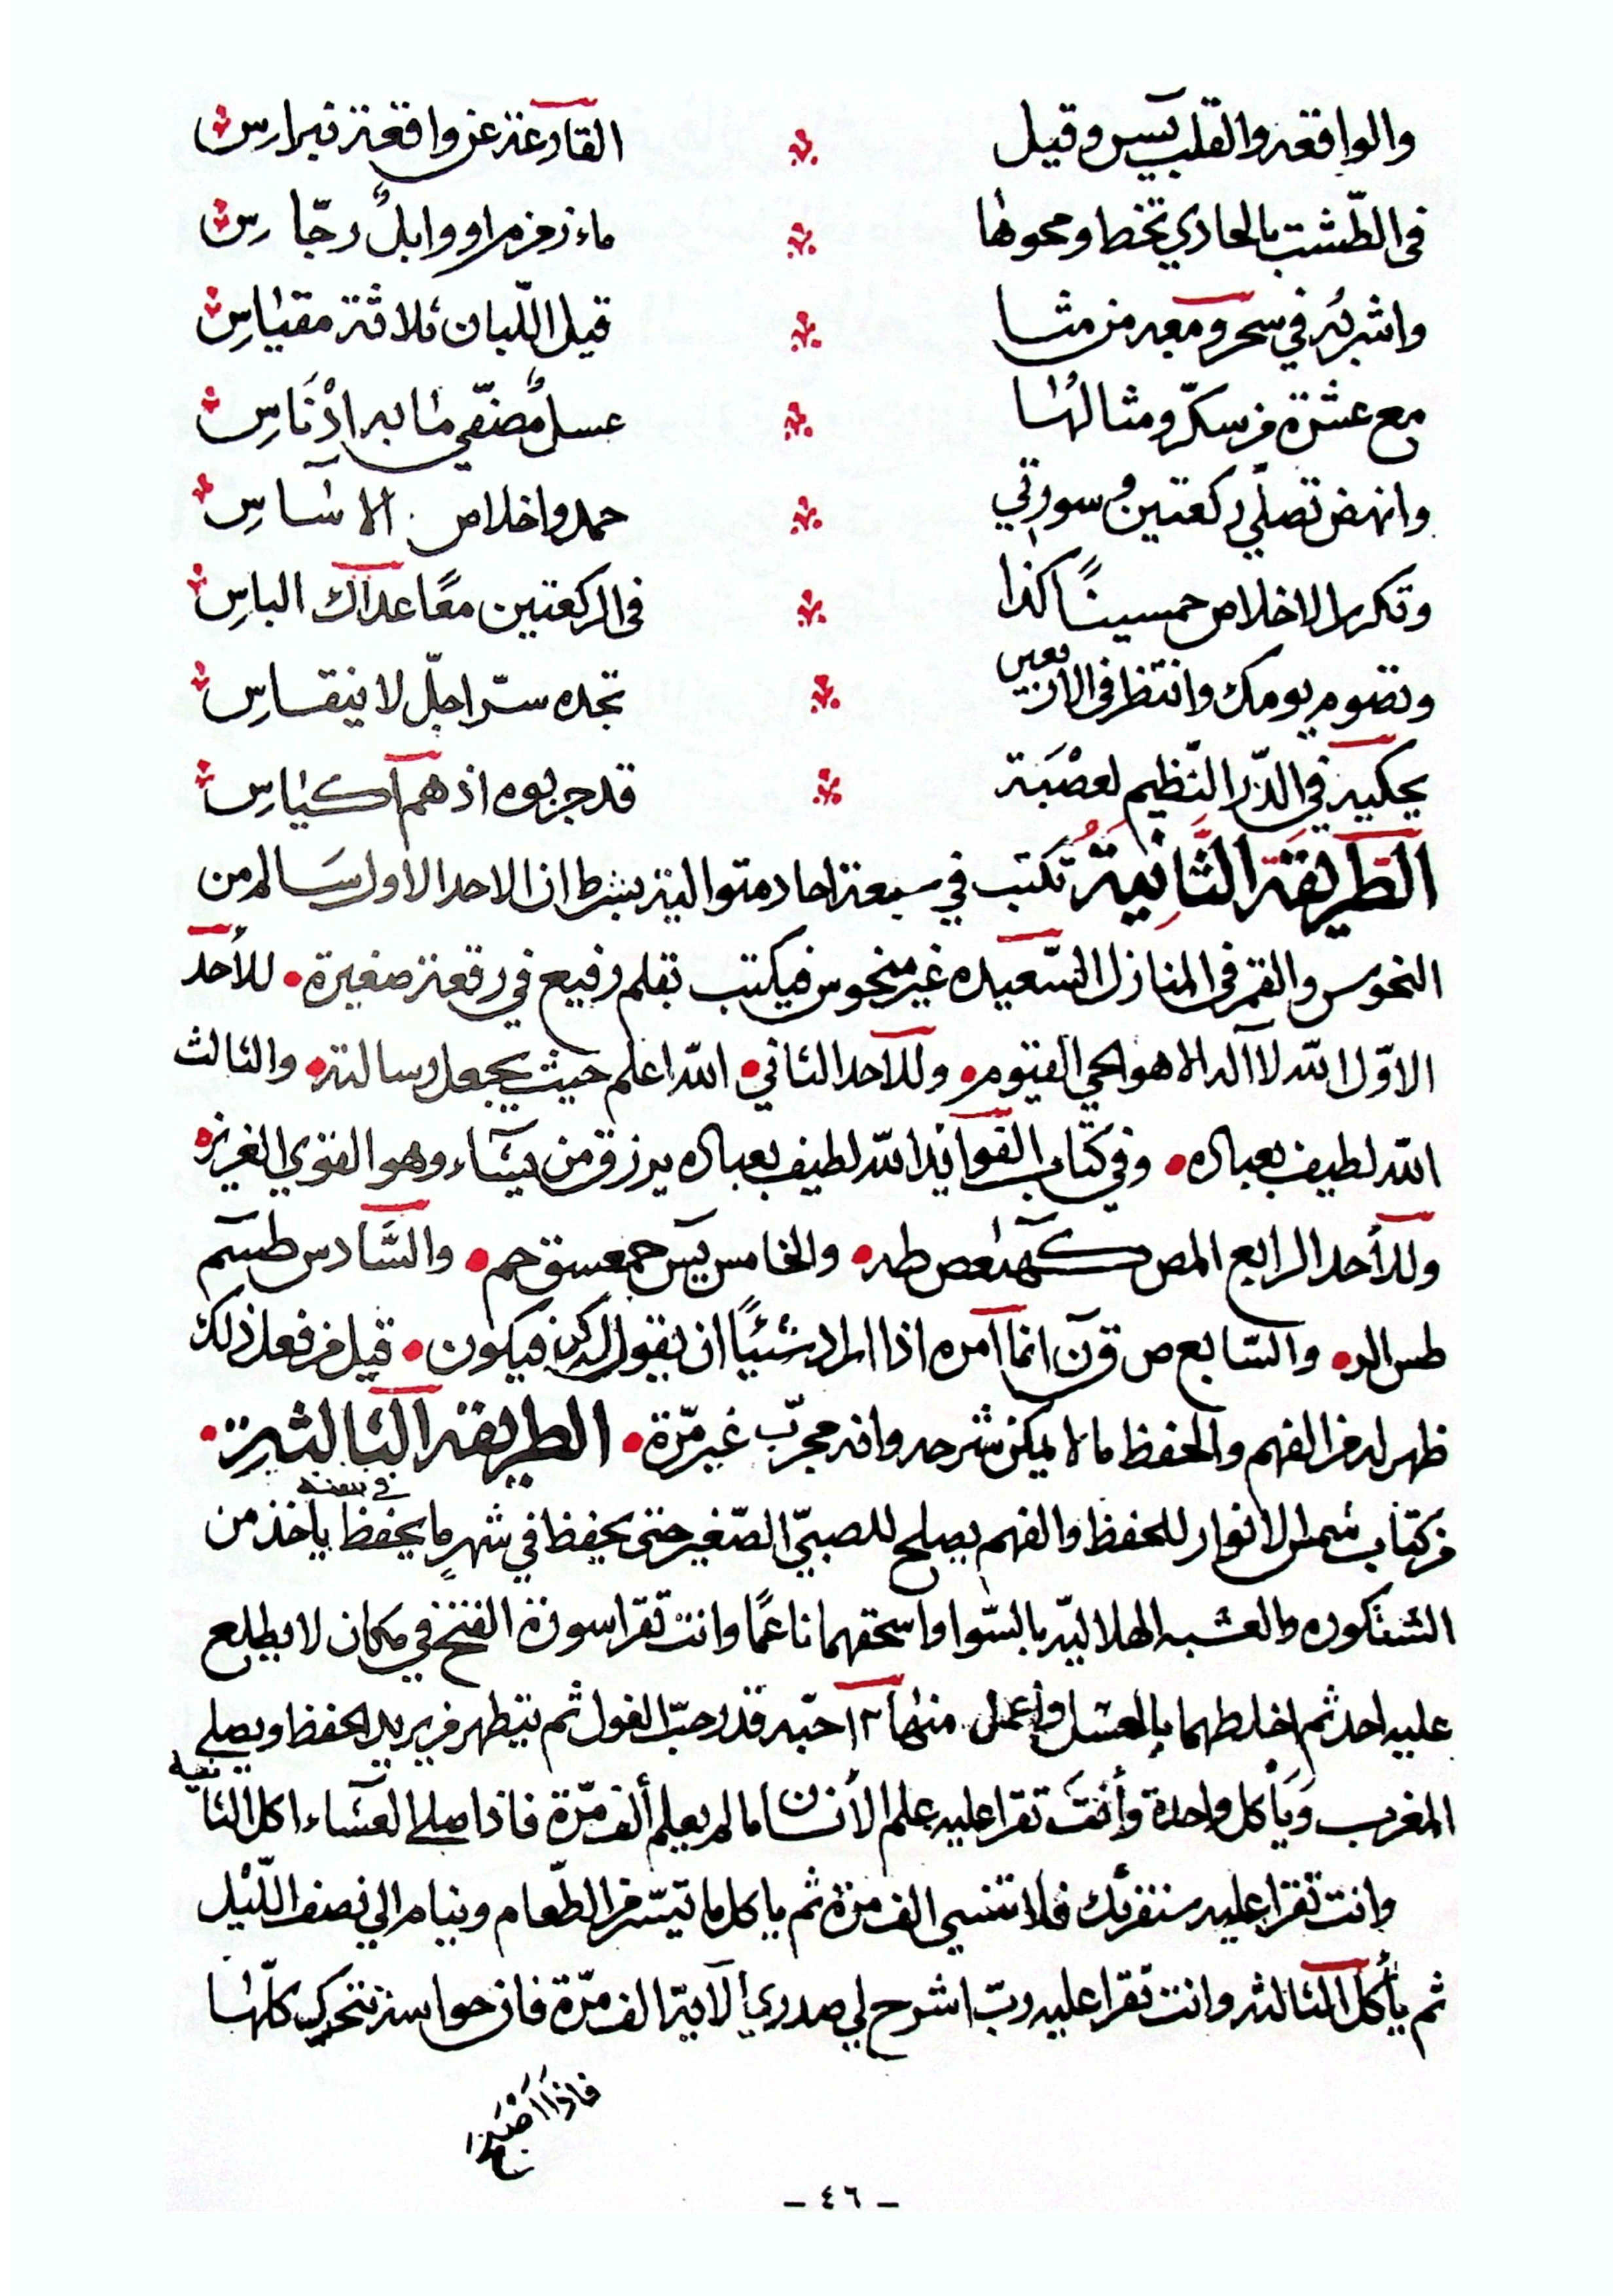 والواقعه والقلب يس وقيل القارعة عن واقعة نبراس
في الطشت بالحادي تخط ومحوها ماء زمزم او وابل رجاس
واشربه في سحر ومعه من مثا قيل اللبان ثلاثة مقياس
مع عشرة من سكر ومثالها عسل مصفى ما به ادناس
وانهض تصلي ركعتين وسورتي حمد واخلاص الاساس
وتكرر الاخلاص خمسينا كذا في الركعتين معا عداك الباس
وتصوم يومك وانتظر في الاربعين تجده سرا جل لا ينقاس
يحكيه في الدر النظيم لعصبة قد جربوه اذ هم اكياس
الطريقة الثانية تكتب في سبعة احاد متوالية بشرط ان الاحد الأول سالم من
النحوس والقمر في المنازل السعيده غير منحوس فيكتب بقلم رفيع في رقعة صغيرة • للأحد
الاول الله لا اله الا هو الحي القيوم • وللأحد الثاني • الله اعلم حيث يجعل رسالته • والثالث
الله لطيف بعباده • وفي كتاب الفوائد الله لطيف بعباده يرزق من يشاء وهو القوي العزيز
وللأحد الرابع المص كهيعص طه • والخامس يس حمعسق حم • والسادس طسم
طس الر • والسابع ص ق ن انما امره اذا اراد شيئا ان يقول له كن فيكون • قيل من فعل ذلك
ظهر له من الفهم والحفظ ما لا يمكن شرحه وانه مجرب غير مرة • الطريقة الثالثة •
من كتاب شمس الانوار للحفظ والفهم يصلح للصبي الصغير حتى يحفظ في شهر ما يحفظ في سنة ياخذ من
الشنكوره والعشبه الهلالية بالسوا واسحقهما ناعما وانت تقرا سورة الفتح في مكان لا يطلع
عليه احد ثم اخلطهما بالعسل واعمل منها ١٢ حبه قدر حب الفول ثم يتطهر من يريد الحفظ ويصلي
المغرب ويأكل واحدة وأنت تقرا عليه علم الأنسان ما لم يعلم ألف مرة فاذا صلى العشاء اكل الثانية
وانت تقرا عليه سنقرئك فلا تنسى الف مرة ثم ياكل ما تيسر من الطعام وينام الى نصف الليل
ثم يأكل الثالثه وانت تقرا عليه رب اشرح لي صدري الآية الف مرة فان حواسه تتحرك كلها
فاذا اصبح
- ٤٦ -